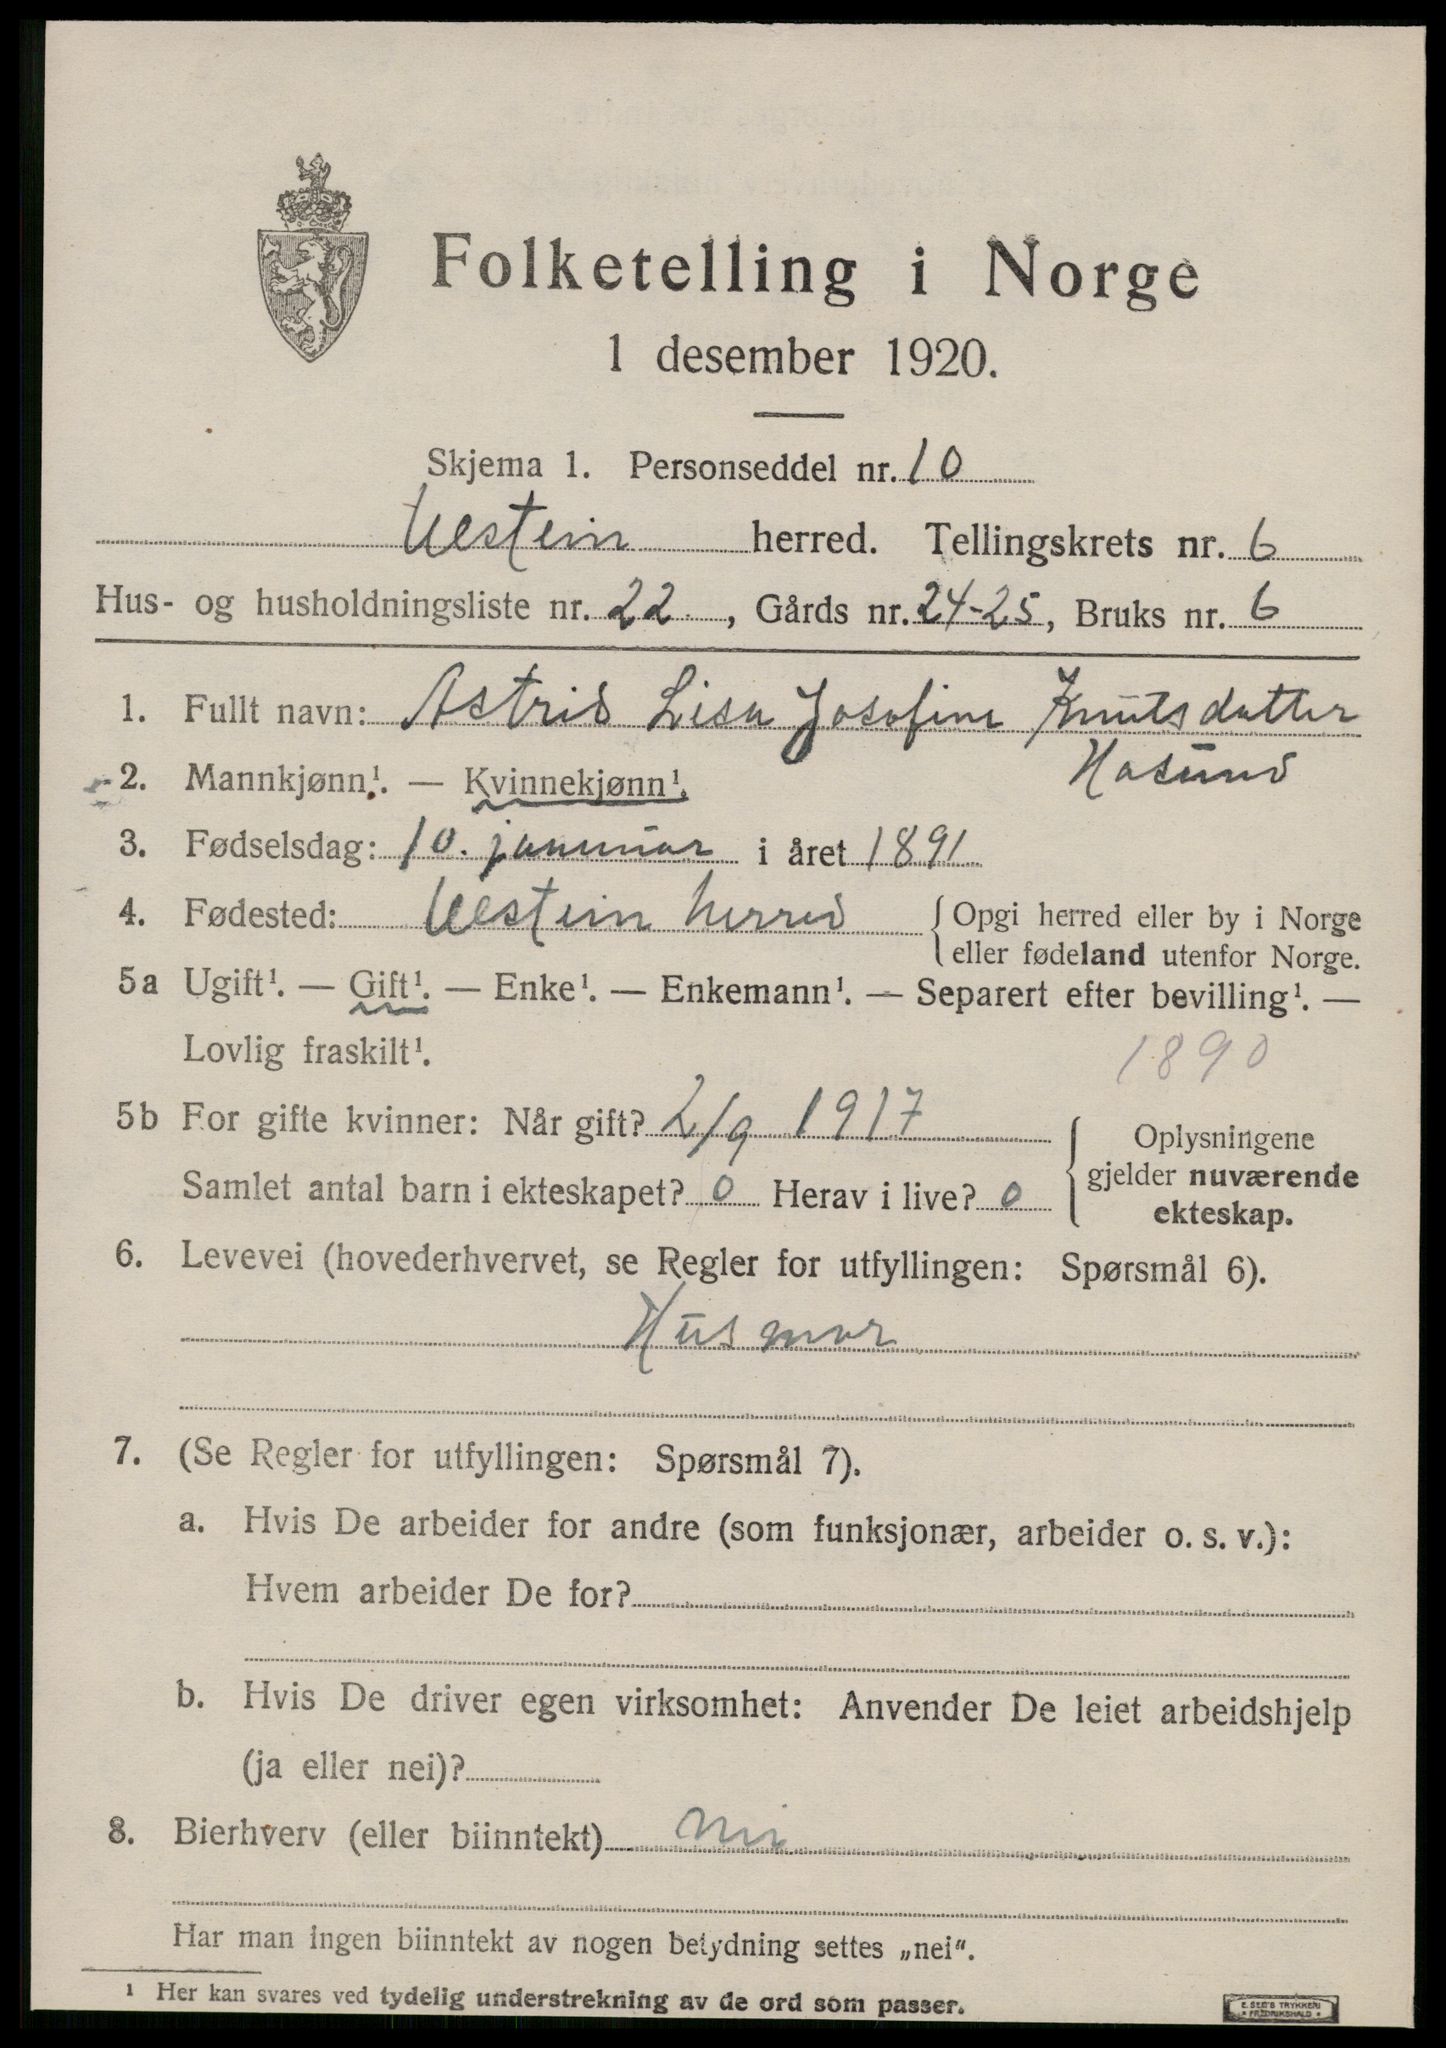 Folketelling i Norge
1 desember 1920.
Skjema 1. Personseddel nr. 10
Ulstein herred. Tellingskrets nr. 6
Hus- og husholdningsliste nr. 22, Gårds nr. 24-25, Bruks nr. 6
1. Fullt navn: Astrid Lisa Josefine Knutsdatter
Hasund
2. Mannkjønn¹. — Kvinnekjønn¹.
3. Fødselsdag: 10. januar i året 1891
4. Fødested: Ulstein herred { Opgi herred eller by i Norge
eller fødeland utenfor Norge.
5a Ugift¹. — Gift¹. — Enke¹. — Enkemann¹. — Separert efter bevilling¹. —
Lovlig fraskilt¹. 1890
5b For gifte kvinner: Når gift? 2/9 1917
Samlet antal barn i ekteskapet? 0 Herav i live? 0
Oplysningene
gjelder nuværende
ekteskap.
6. Levevei (hovederhvervet, se Regler for utfyllingen: Spørsmål 6).
Husmor
7. (Se Regler for utfyllingen: Spørsmål 7).
a. Hvis De arbeider for andre (som funksjonær, arbeider o. s. v.):
Hvem arbeider De for?
b. Hvis De driver egen virksomhet: Anvender De leiet arbeidshjelp
(ja eller nei)?
8. Bierhverv (eller biinntekt) nei
Har man ingen biinntekt av nogen betydning settes „nei“.
1 Her kan svares ved tydelig understrekning av de ord som passer.
E. SEM'S TRYKKERI
• FREDRIKSHALD •